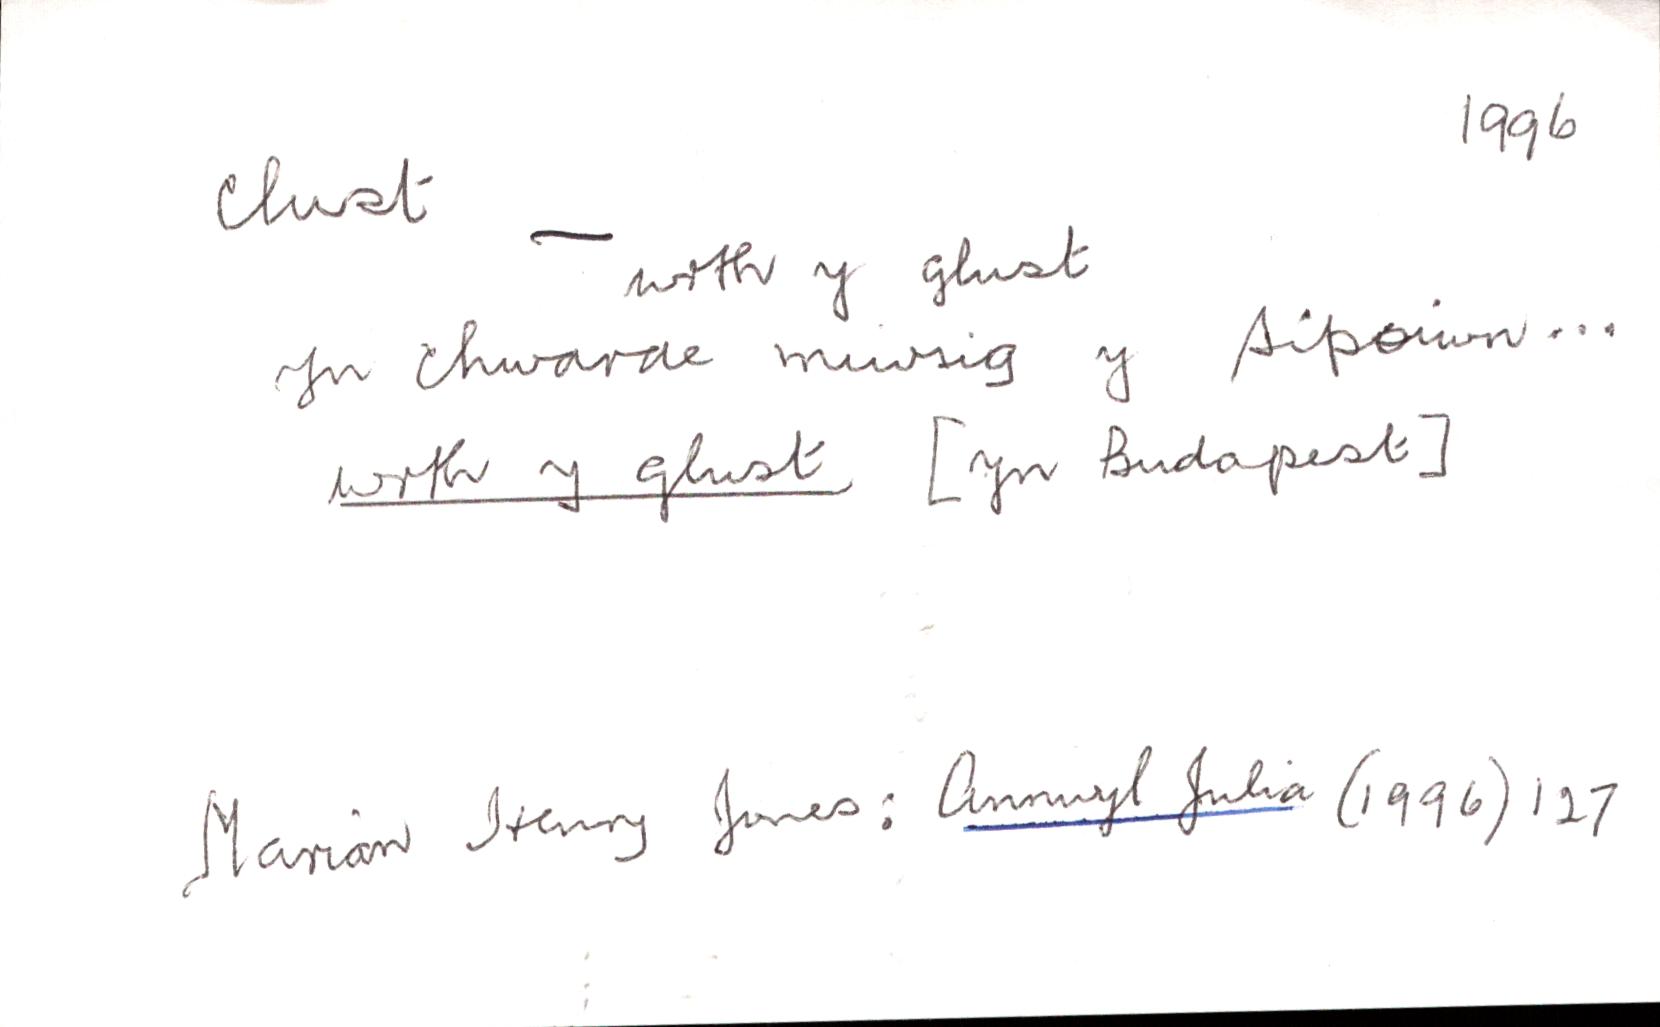 1996
clust —
wrth y glust
yn chwarae miwsig y sipsiwn...
wrth y glust [yn Budapest]
Marian Henry Jones: Annwyl Julia (1996) 127